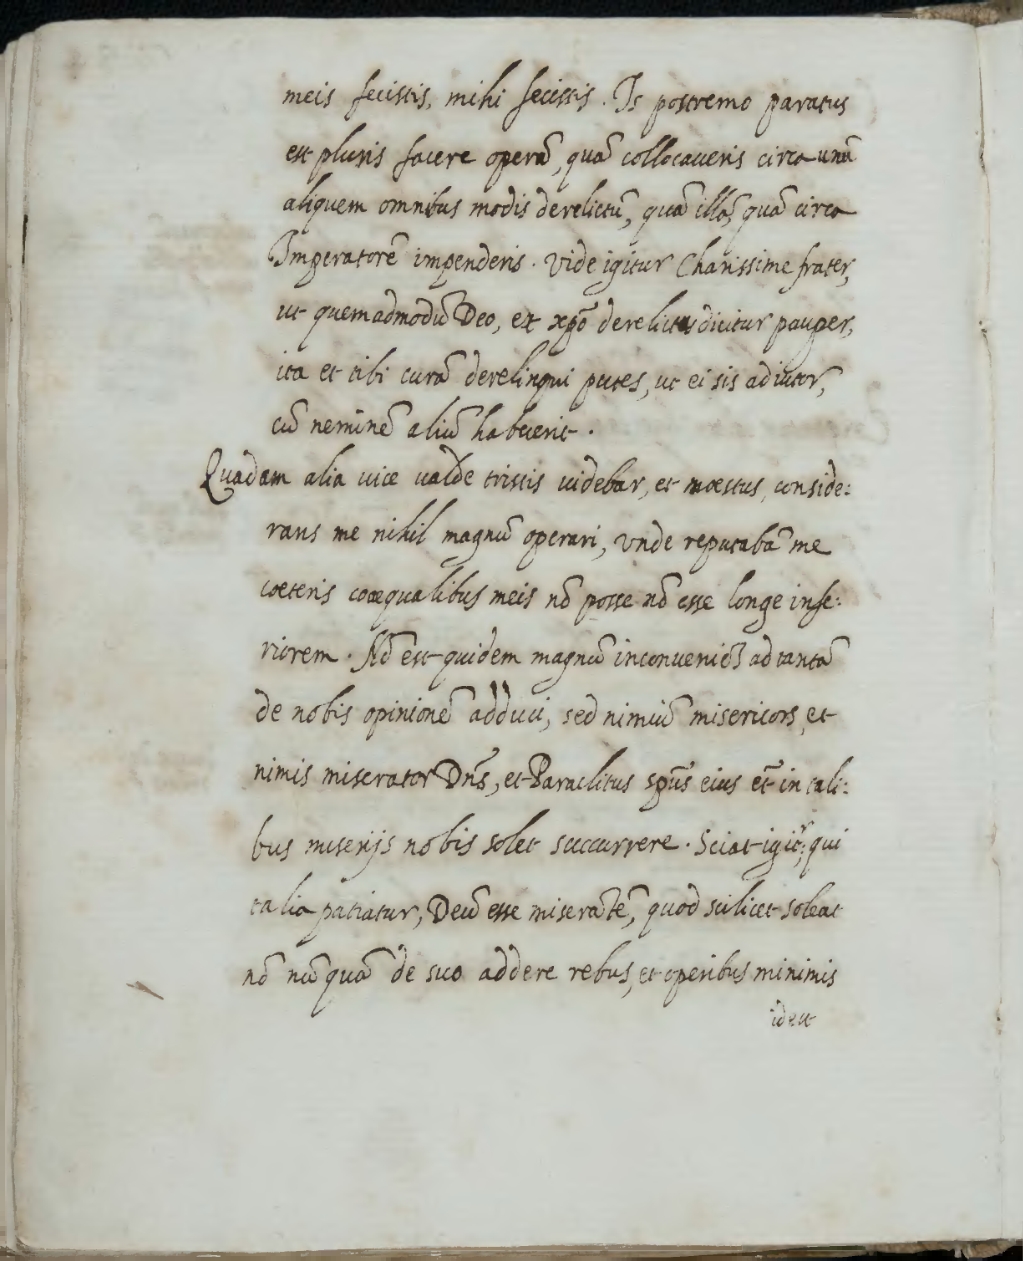 meis fecistis, mihi fecistis. Is postremo paratus
est pluris facere operã, quã collocaueris circa unũ
aliquem omnibus modis derelictũ, quã illã, quã circa
Imperatorẽ impenderis. Vide igitur Charissime frater,
ut quemadmodũ Deo, et xp̃o derelictus dicitur pauper,
ita et tibi curã derelinqui putes, ut ei sis adiutor,
cũ neminẽ aliũ habuerit.
Quadam alia uice ualde tristis uidebar, et moestus, conside:
rans me nihil magnũ operari, Vnde reputabã me
coeteris coæqualibus meis nõ posse nõ esse longe infe:
riorem. Nõ est quidem magnũ inconueniẽs ad tantã
de nobis opinionẽ adduci, sed nimiũ misericors, et
nimis miserator Dñs, et Paraclitus sp̃us eius et̃ in tali:
bus miserijs nobis solet succurrere. Sciat igitr̃, qui
talia patiatur, Deũ esse miserãtẽ, quod scilicet soleat
nõ nũquã de suo addere rebus, et operibus minimis
id est